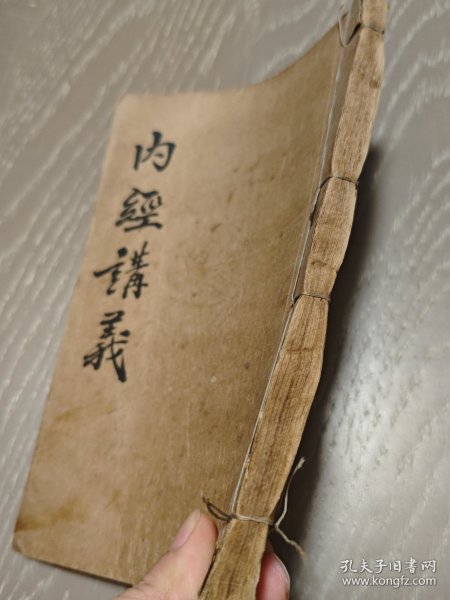 内經講義
孔夫子旧书网
www.kongfz.com